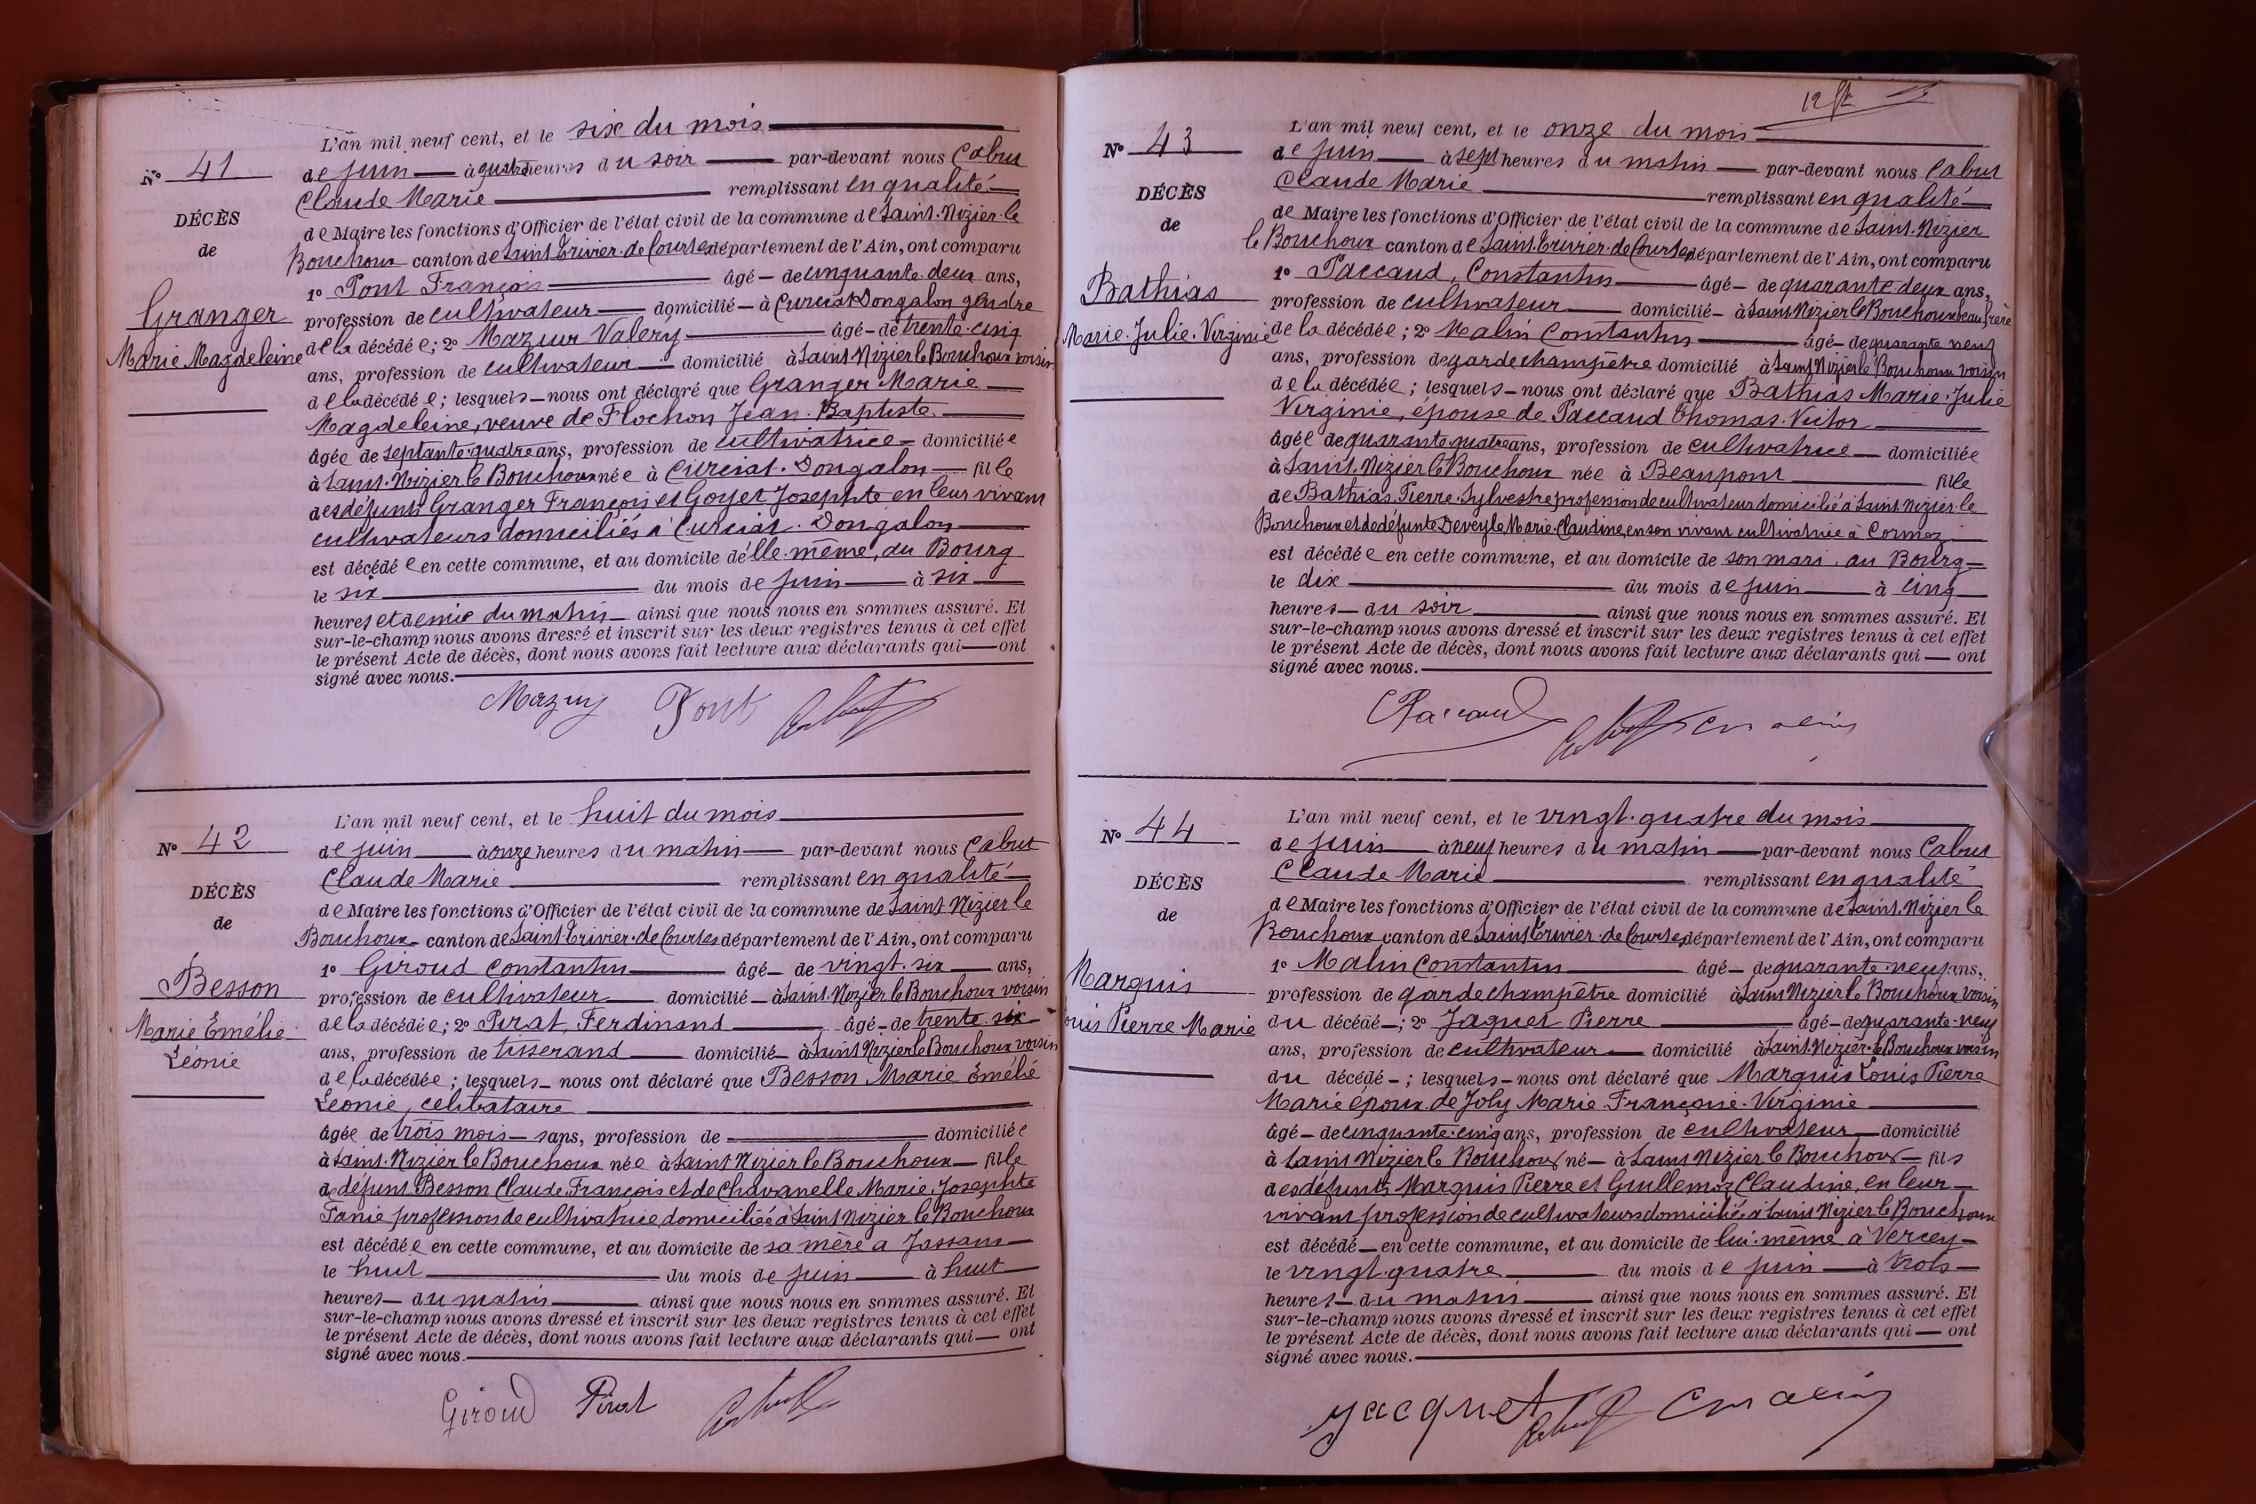 L'an mil neuf cent, et le six du mois
N° 41
de juin à quatre heures du soir par-devant nous Cabut
Claude Marie remplissant en qualité
DÉCÈS
de Maire les fonctions d'Officier de l'état civil de la commune de Saint-Nizier-le
de
Bouchoux canton de Saint-Trivier-de-Courtes département de l'Ain, ont comparu
1° Pont François âgé de cinquante-deux ans,
Granger
profession de cultivateur domicilié à Curciat-Dongalon gendre
Marie Magdeleine
de la décédée; 2° Mazuir Valery âgé de trente-cinq
ans, profession de cultivateur domicilié à Saint Nizier le Bouchoux voisin
de la décédée; lesquels nous ont déclaré que Granger Marie
Magdeleine, veuve de Flochon Jean-Baptiste
âgée de septante-quatre ans, profession de cultivatrice domiciliée
à Saint-Nizier le Bouchoux née à Curciat-Dongalon fille
des défunts Granger François et Goyet Josephte en leur vivant
cultivateurs domiciliés à Curciat-Dongalon
est décédée en cette commune, et au domicile d'elle-même, au Bourg
le six du mois de juin à six
heures et demie du matin ainsi que nous nous en sommes assuré. Et
sur-le-champ nous avons dressé et inscrit sur les deux registres tenus à cet effet
le présent Acte de décès, dont nous avons fait lecture aux déclarants qui ont
signé avec nous.
Mazuy Pont Cabut
L'an mil neuf cent, et le huit du mois
N° 42
de juin à onze heures du matin par-devant nous Cabut
Claude Marie remplissant en qualité
DÉCÈS
de Maire les fonctions d'Officier de l'état civil de la commune de Saint Nizier le
de
Bouchoux canton de Saint-Trivier-de-Courtes département de l'Ain, ont comparu
1° Giroud Constantin âgé de vingt-six ans,
Besson
profession de cultivateur domicilié à Saint-Nizier le Bouchoux voisin
Marie Emélie
de la décédée; 2° Pirat Ferdinand âgé de trente-six
Léonie
ans, profession de tisserand domicilié à Saint Nizier le Bouchoux voisin
de la décédée; lesquels nous ont déclaré que Besson Marie Emélie
Léonie, célibataire
âgée de trois mois ans, profession de domiciliée
à Saint-Nizier le Bouchoux née à Saint Nizier le Bouchoux fille
de défunt Besson Claude François et de Chavanelle Marie Josephte
Fanie profession de cultivatrice domiciliée à Saint Nizier le Bouchoux
est décédée en cette commune, et au domicile de sa mère à Jassans
le huit du mois de juin à huit
heures du matin ainsi que nous nous en sommes assuré. Et
sur-le-champ nous avons dressé et inscrit sur les deux registres tenus à cet effet
le présent Acte de décès, dont nous avons fait lecture aux déclarants qui ont
signé avec nous.
Giroud Pirat Cabut
12
L'an mil neuf cent, et le onze du mois
N° 43
de juin à sept heures du matin par-devant nous Cabut
Claude Marie remplissant en qualité
DÉCÈS
de Maire les fonctions d'Officier de l'état civil de la commune de Saint-Nizier
de
le Bouchoux canton de Saint-Trivier-de-Courtes département de l'Ain, ont comparu
1° Paccaud, Constantin âgé de quarante deux ans,
Bathias
profession de cultivateur domicilié à Saint Nizier le Bouchoux beau frère
Marie-Julie-Virginie
de la décédée; 2° Malin Constantin âgé de quarante neuf
ans, profession de garde champêtre domicilié à Saint Nizier le Bouchoux voisin
de la décédée; lesquels nous ont déclaré que Bathias Marie-Julie
Virginie, épouse de Paccaud Thomas-Victor
âgée de quarante quatre ans, profession de cultivatrice domiciliée
à Saint-Nizier le Bouchoux née à Beaupont fille
de Bathias Pierre-Sylvestre profession de cultivateur domicilié à Saint-Nizier-le
Bouchoux et de défunte Deveyle Marie-Claudine, en son vivant cultivatrice à Cormoz
est décédée en cette commune, et au domicile de son mari, au Bourg
le dix du mois de juin à cinq
heures du soir ainsi que nous nous en sommes assuré. Et
sur-le-champ nous avons dressé et inscrit sur les deux registres tenus à cet effet
le présent Acte de décès, dont nous avons fait lecture aux déclarants qui ont
signé avec nous.
CPaccaud Cabut C malin
L'an mil neuf cent, et le vingt-quatre du mois
N° 44
de juin à neuf heures du matin par-devant nous Cabut
Claude Marie remplissant en qualité
DÉCÈS
de Maire les fonctions d'Officier de l'état civil de la commune de Saint-Nizier le
de
Bouchoux canton de Saint Trivier-de-Courtes département de l'Ain, ont comparu
1° Malin Constantin âgé de quarante-neuf ans,
Marguis
profession de garde champêtre domicilié à Saint Nizier le Bouchoux voisin
ouis Pierre Marie
du décédé; 2° Jaquet Pierre âgé de quarante-neuf
ans, profession de cultivateur domicilié à Saint-Nizier-le Bouchoux voisin
du décédé; lesquels nous ont déclaré que Marguis Louis Pierre
Marie époux de Joly Marie Françoise-Virginie
âgé de cinquante-cinq ans, profession de cultivateur domicilié
à Saint Nizier le Bouchoux né à Saint Nizier le Bouchoux fils
des défunts Marguis Pierre et Guillemoz Claudine, en leur
vivant profession de cultivateurs domiciliés à Saint Nizier le Bouchoux
est décédé en cette commune, et au domicile de lui-même à Vercey
le vingt-quatre du mois de juin à trois
heures du matin ainsi que nous nous en sommes assuré. Et
sur-le-champ nous avons dressé et inscrit sur les deux registres tenus à cet effet
le présent Acte de décès, dont nous avons fait lecture aux déclarants qui ont
signé avec nous.
Jacquet Cabut C malin